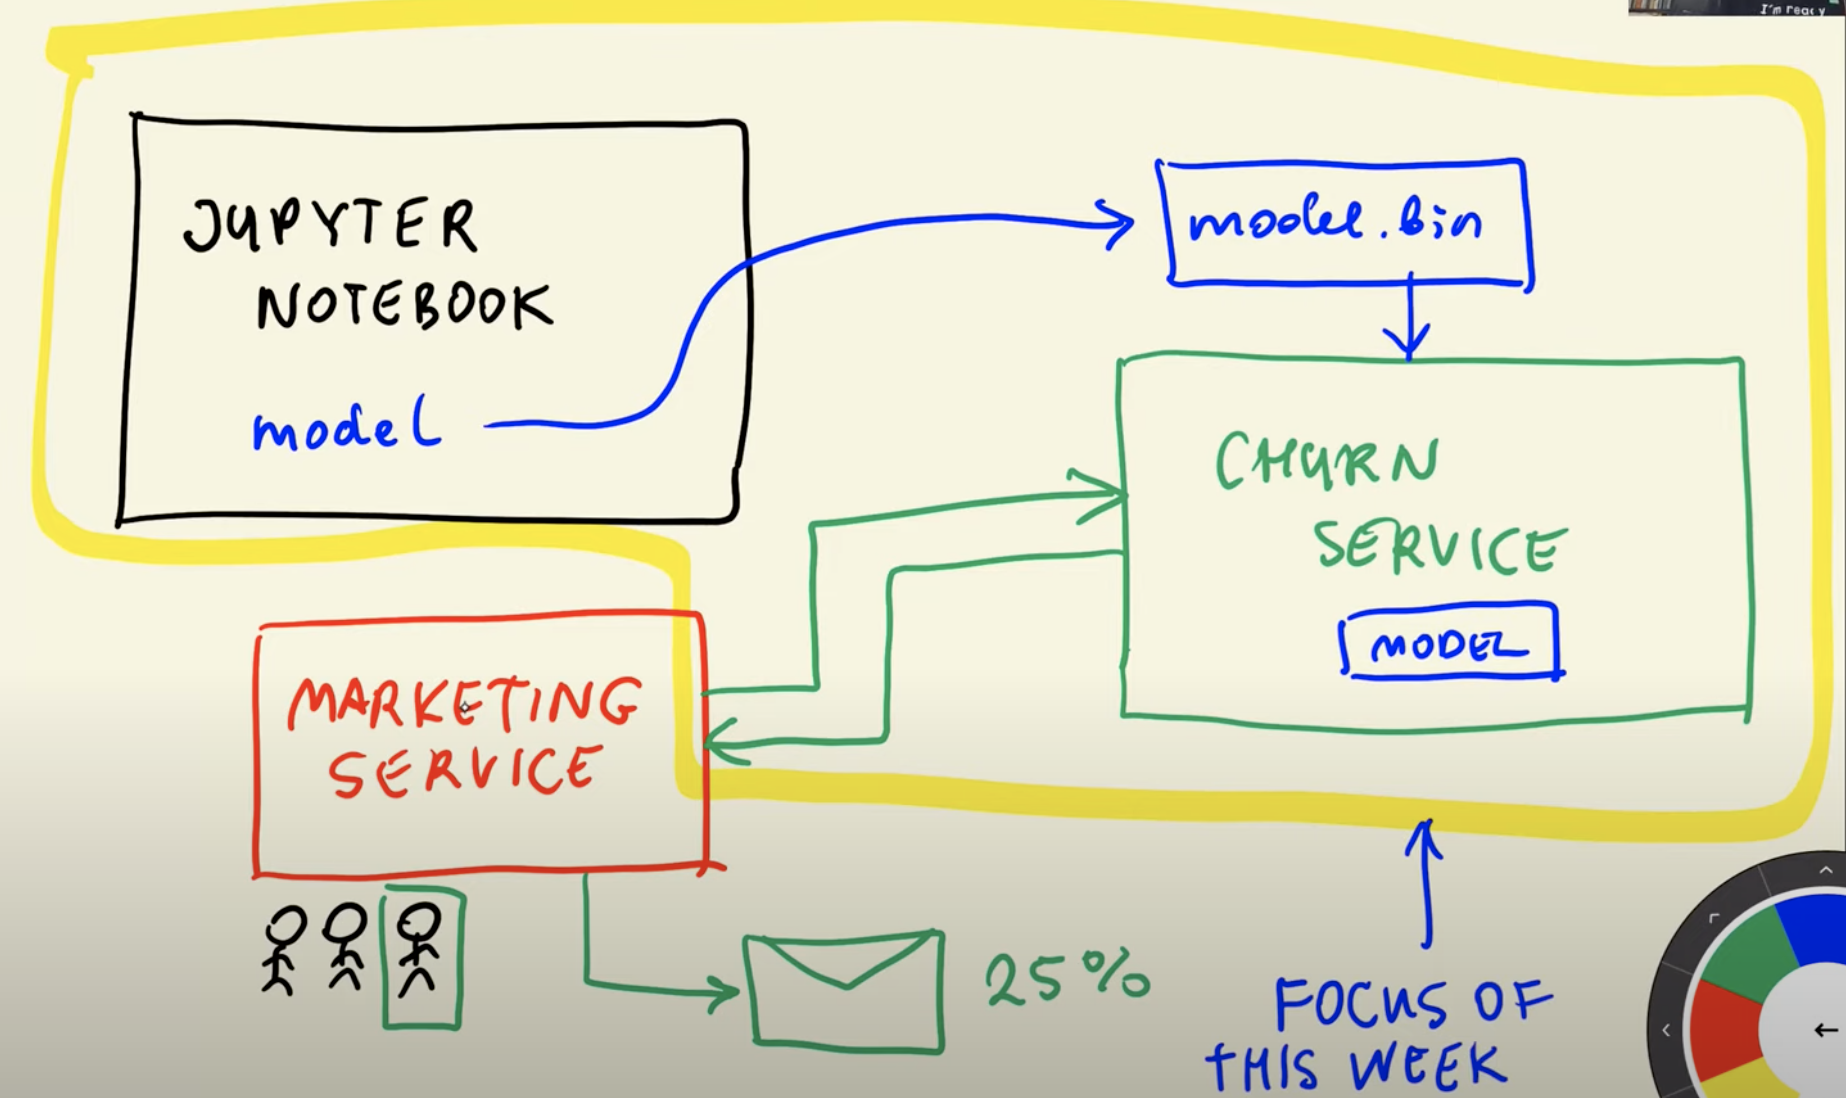 I'm ready
JUPYTER
NOTEBOOK
model
model.bin
CHURN
SERVICE
MODEL
MARKETING
SERVICE
25%
FOCUS OF
THIS WEEK